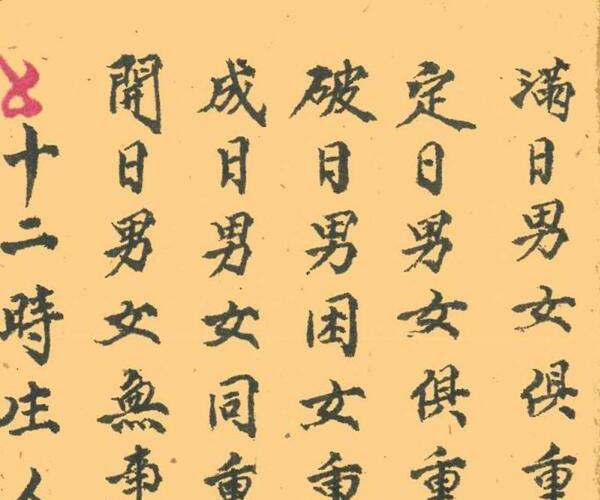 滿日男女俱重
定日男女俱重
破日男困女重
成日男女同重
開日男女無事
十二時生人